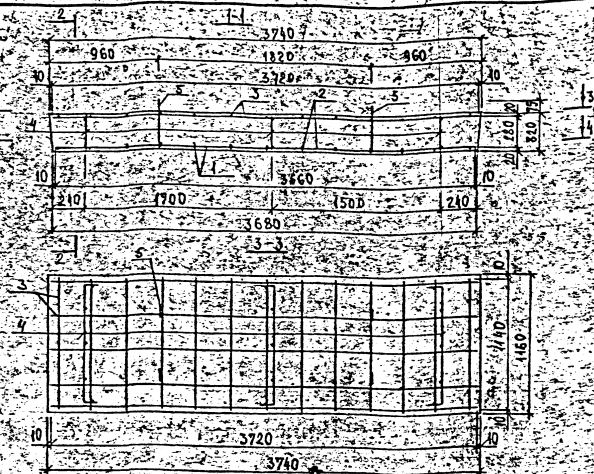 2 1-1
3740
960 1820 960
10 3720 10
5 3 2 5
4
20 15
180 220
20
3
4
1
10 3660 10
210 1700 1500 210
3680
2 3-3
5
3
4
10
1140 1160
10
10 3720 10
3740